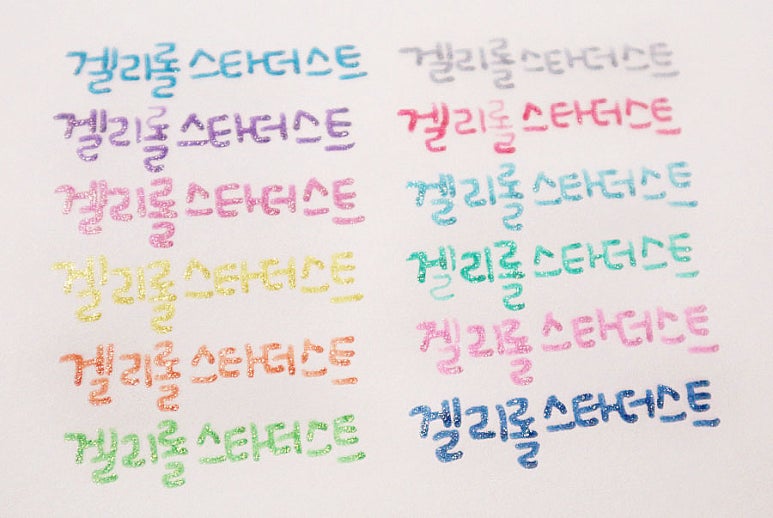 겔리롤 스타더스트
겔리롤 스타더스트
겔리롤 스타더스트
겔리롤 스타더스트
겔리롤 스타더스트
겔리롤 스타더스트
겔리롤 스타더스트
겔리롤 스타더스트
겔리롤 스타더스트
겔리롤 스타더스트
겔리롤 스타더스트
겔리롤 스타더스트